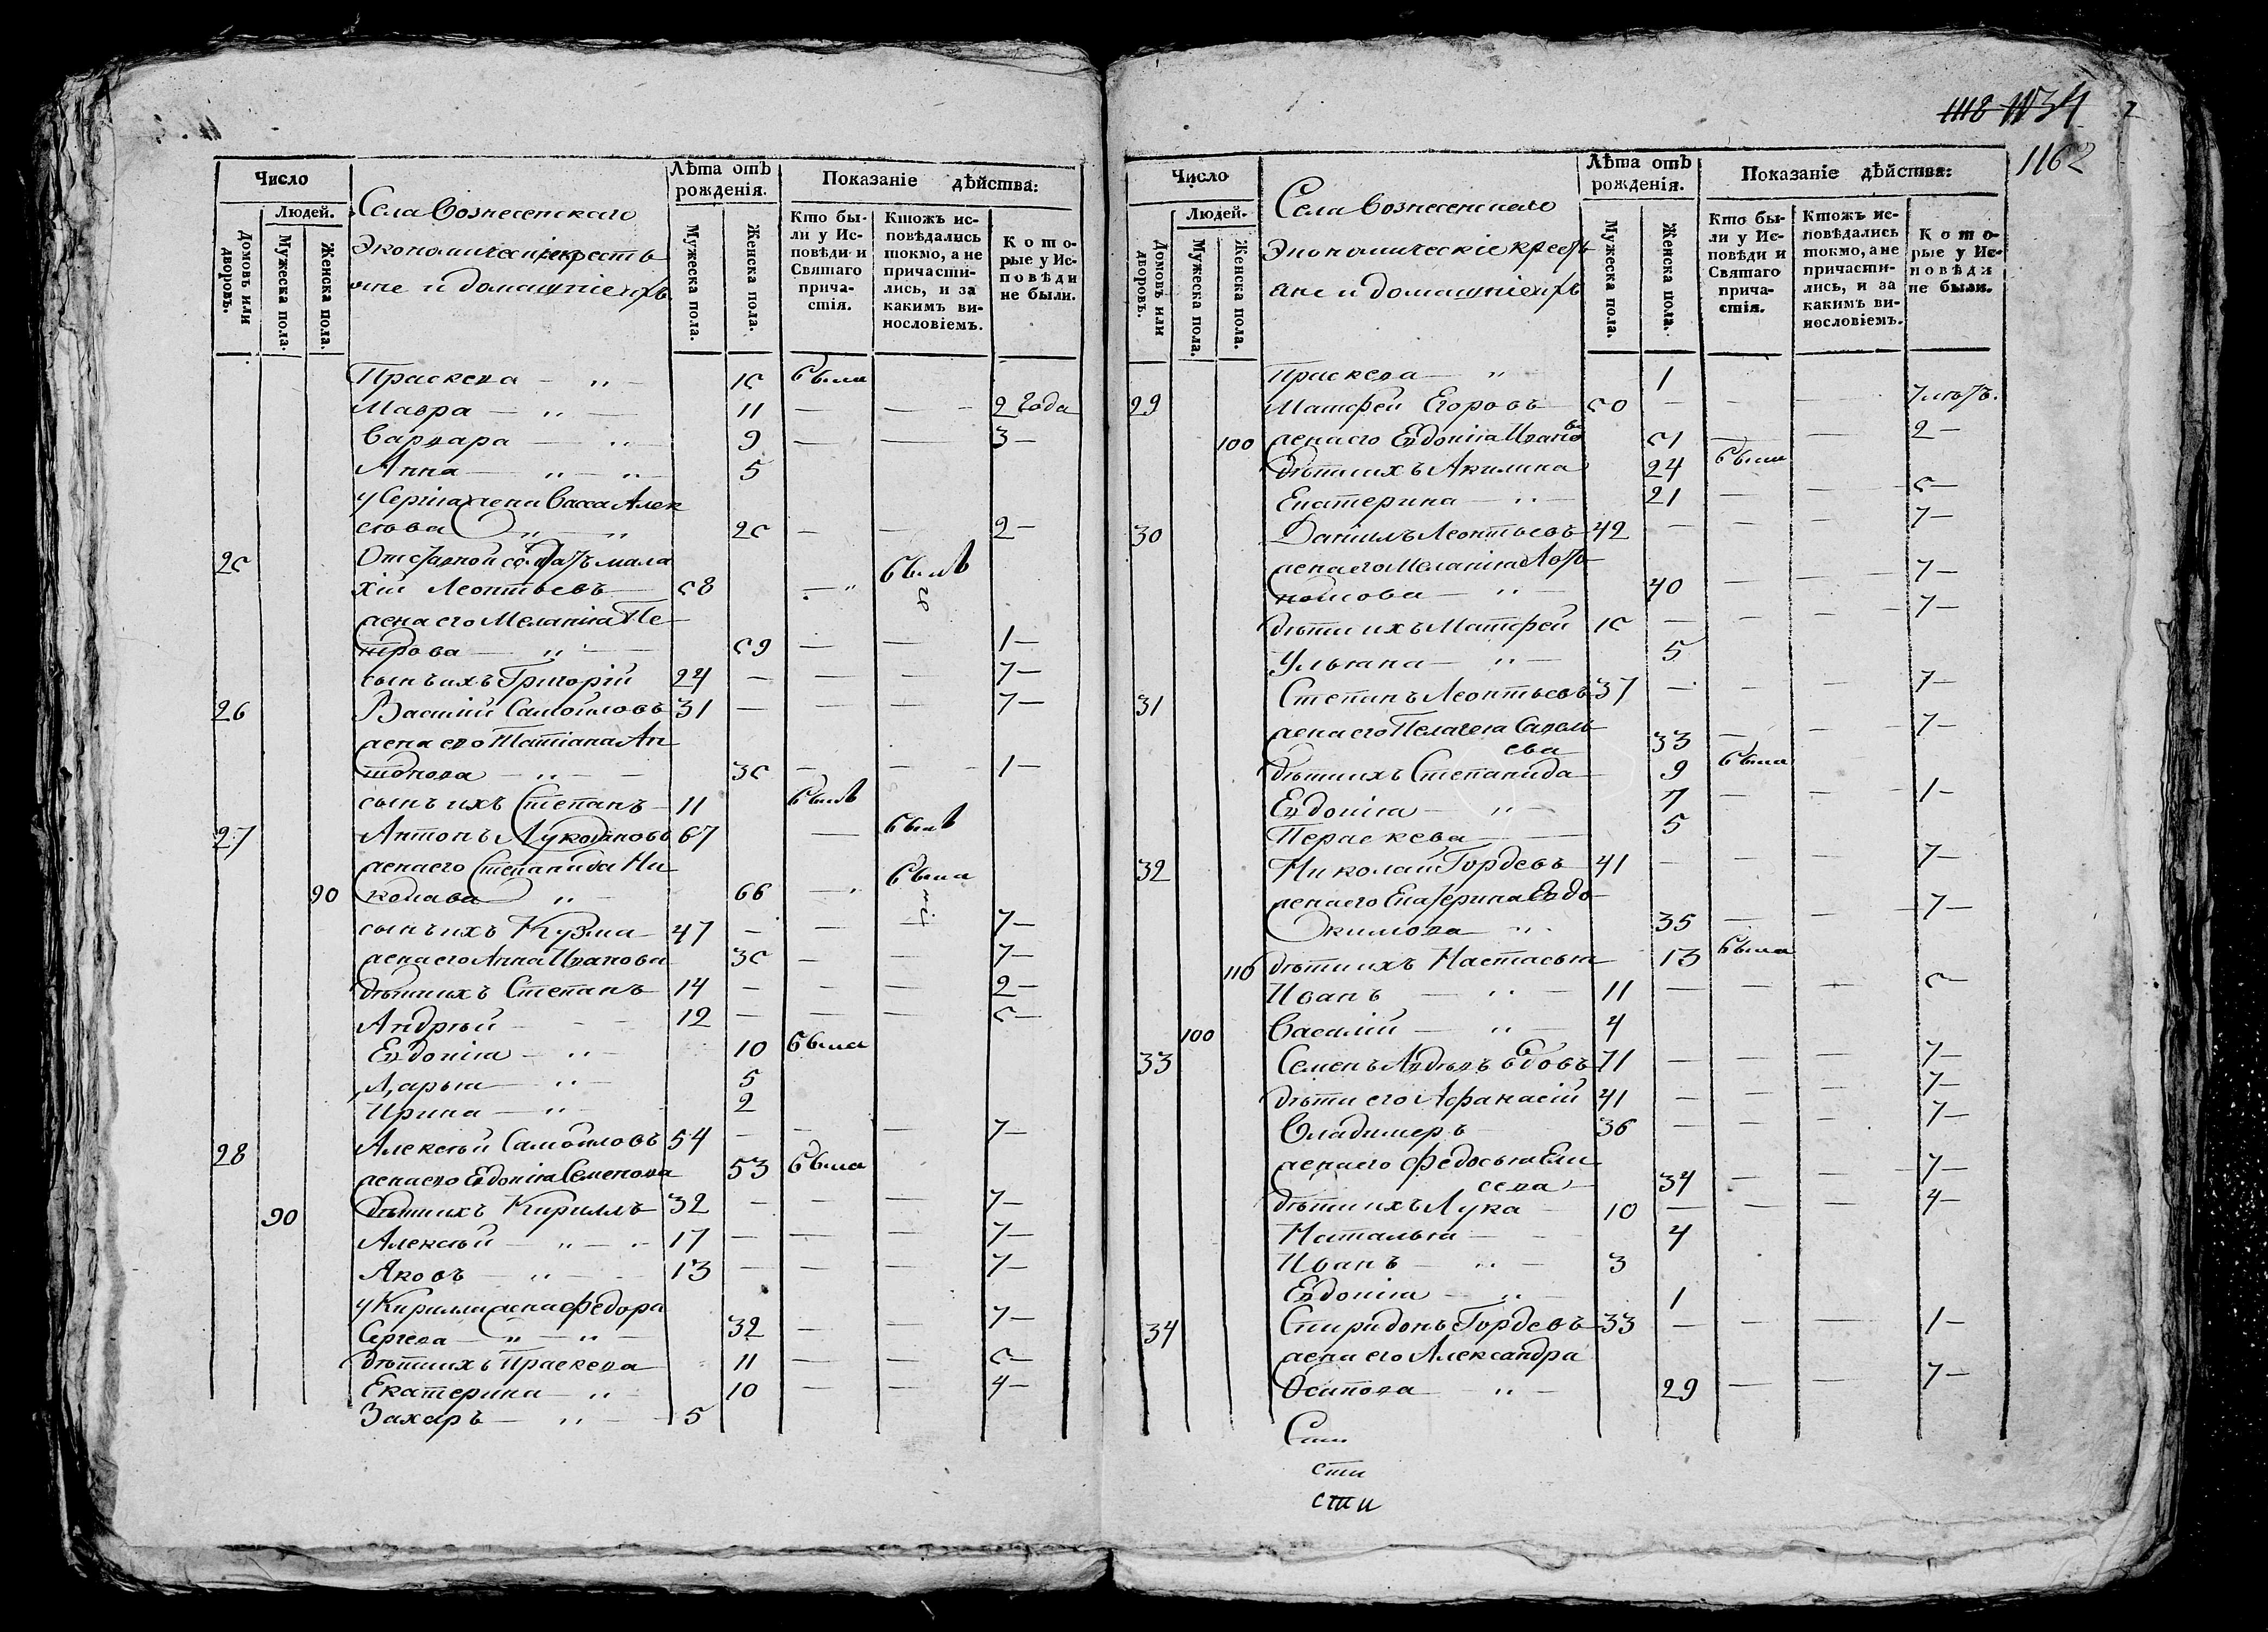 Число
Людей.
Домовъ или дворовъ.
Мужеска пола.
Женска пола.
Села Вознесенскаго
Экономическiе крестъ
яне и домашнiе ихъ
Лѣта отъ рожденiя.
Мужеска пола.
Женска пола.
Показанiе дѣйства:
Кто бы-
ли у Ис-
повѣди и
Святаго
прича-
стiя.
Ктожъ ис-
повѣдались
токмо, а не
причасти-
лись, и за
какимъ ви-
нословiемъ.
Кото-
рые у Ис-
повѣди
не были.
Праскева — „ — 15 была
Мавра — „ — 11 — — 2 года
Варвара — „ 9 — — 3 —
Анна — „ — „ 5
у Сергiя жена Васса Алек
сѣева „ „ 25 — — 2 —
25 Отставной солдатъ мала
хiй Леонтьевъ — 58 — „ былъ
жена его Меланiя Пе
трова — „ — 59 — — 1 —
сынъ ихъ Григорiй 24 — — — 7 —
26 Василiй Самойловъ 31 — — — 7 —
жена ево Татiана Ан
тонова — „ — 35 — — — 1 —
сынъ ихъ Степанъ — 11 былъ
27 Антонъ Лукояновъ 67 — былъ
жена его Степанида Ни
90 колаева „ — 66 — была
сынъ ихъ Кузма — 47 — — — 7 —
жена его Анна Иванова 35 — — — 7 —
дѣти ихъ Степанъ 14 — — — 2 —
Андрѣй — — 12 — — — 5 —
Евдокiя — „ — 10 была
Дарья — „ — 5
Ирина — „ — 2
28 Алексѣй Самойловъ 54 — — — 7 —
жена ево Евдокiя Семенова 53 была
90 дѣти ихъ Кириллъ 32 — — — 7 —
Алексѣй — „ — 17 — — — 7 —
Яковъ — „ — 13 — — — 7 —
у Кирилла жена федора
Сергева — „ — „ — 32 — — 7 —
дѣти ихъ Праскева 11 — — 5 —
Екатерина — „ 10 — — 4 —
Захаръ — „ — 5
1118 1134
1162
Число
Людей.
Домовъ или дворовъ.
Мужеска пола.
Женска пола.
Села Вознесенскаго
Экономическiе кресть
яне и домашнiе ихъ
Лѣта отъ рожденiя.
Мужеска пола.
Женска пола.
Показанiе дѣйства:
Кто бы-
ли у Ис-
повѣди и
Святаго
прича-
стiя.
Ктожъ ис-
повѣдались
токмо, а не
причасти-
лись, и за
какимъ ви-
нословiемъ.
Кото-
рые у Ис-
повѣди
не были.
Праскева — „ 1
29 Матфей Егоровъ — 50 — — — 7 лѣтъ.
100 жена его Евдокiя Иванова 51 — — 2 —
дѣти ихъ Акилина 24 была
Екатерина — „ — 21 — — 5 —
30 Данилъ Леонтьевъ 42 — — — 7 —
жена его Меланiя
„ — 40 — — 7 —
дѣти ихъ Матфей 15 — — — 7 —
Ульяна — „ — 5
31 Степанъ Леонтьевъ 37 — — — 7 —
жена его Пелагея Савель
ева 33 — — 7 —
дѣти ихъ Степанида 9 была
Евдокiя — „ — 7 — — 1 —
Пераскева — 5
32 Николай Гордевъ 41 — — — 7 —
жена его Екатерина Евдо
кимова „ 35 — — 7 —
110 дѣти ихъ Настасья 13 была
Иванъ — „ — 11 — — — 5
100 Василiй — „ — 4
33 Семенъ вдовъ 71 — — — 7 —
дѣти его Афанасiй 41 — — — 7 —
Владимеръ 36 — — — 7 —
жена его федосья Ели
сева — 34 — — 7 —
дѣти ихъ Лука — 10 — — — 4 —
Наталья — 4
Иванъ — „ — 3
Евдокiя — „ — 1
34 Спиридонъ Гордевъ 33 — — — 1 —
жена его Александра
Осипова — „ — 29 — — 7 —
сти
сти